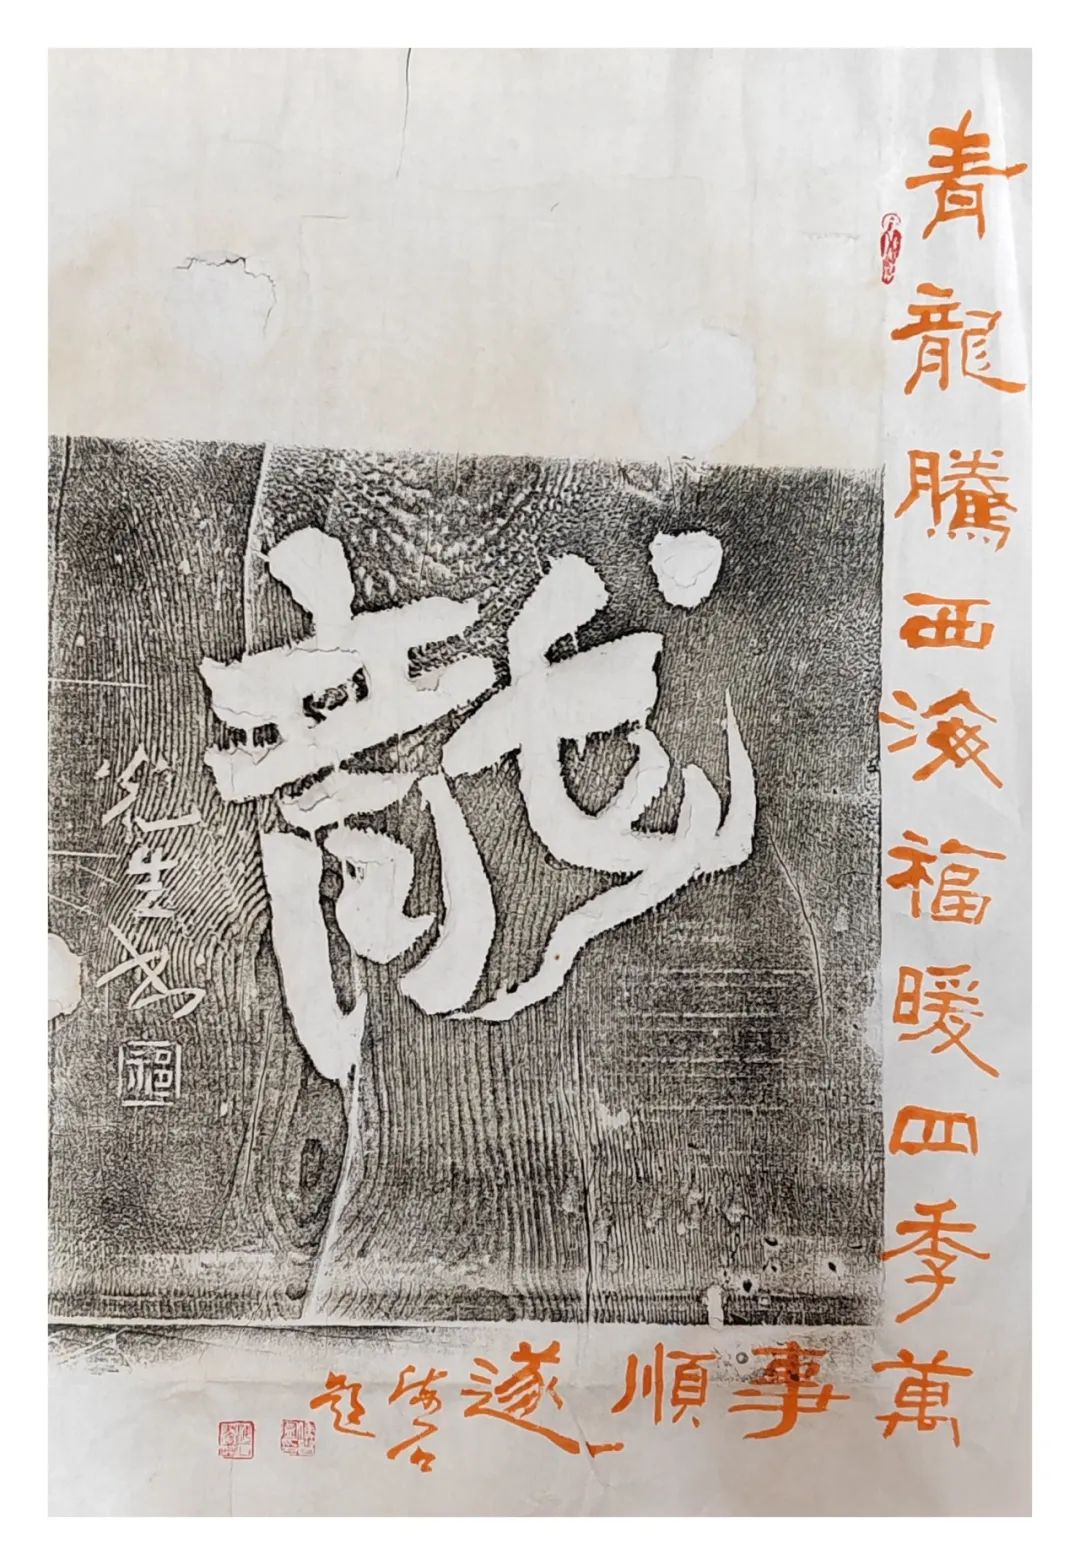 青龍騰西海福暖四季萬
事順遂
海石
題
龍